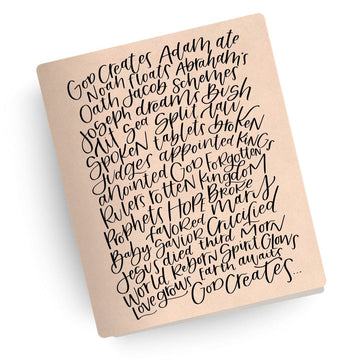 God Creates Adam ate
Noah floats Abraham's
Oath Jacob Schemes
Joseph dreams Bush
lit Sea Split Law
Spoken tablets broken
Judges appointed Kings
anointed God Forgotten
Rulers rotten Kingdom
Prophets HOPE Broke
favored Mary
Baby Savior Crucified
Jesus died third Morn
World Reborn Spirit Glows
Love grows Earth awaits
God Creates...